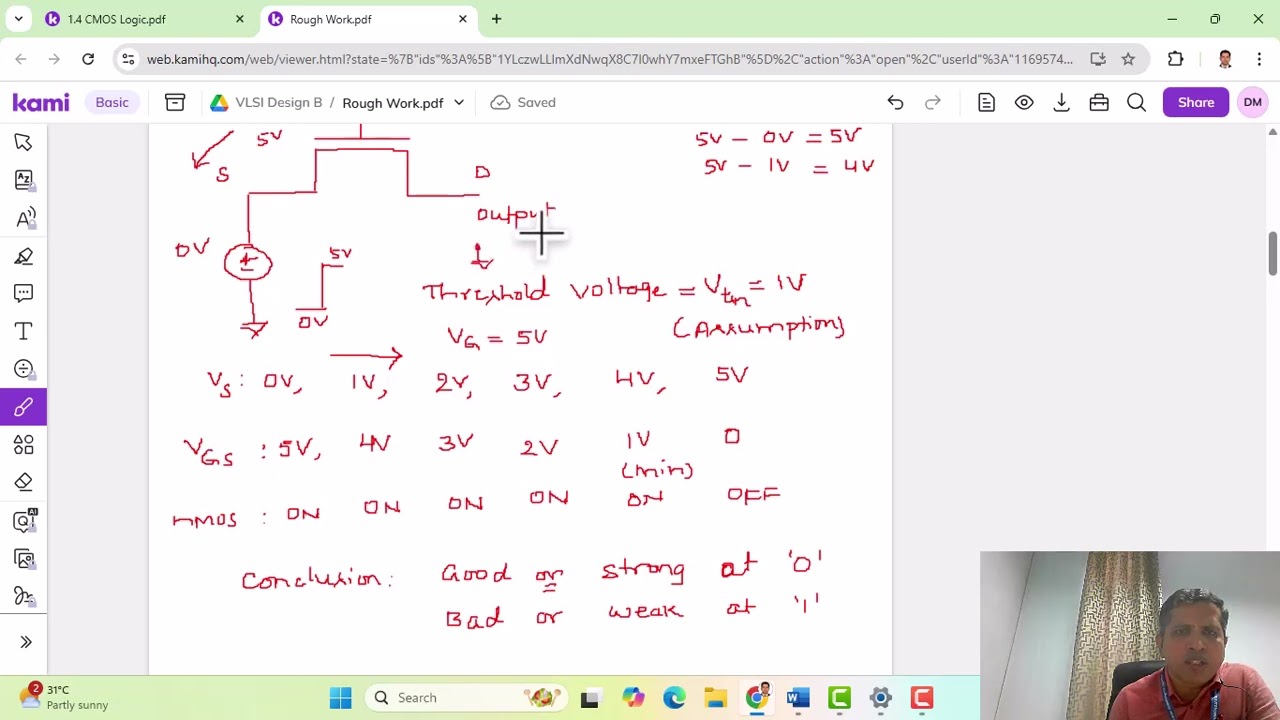 1.4 CMOS Logic.pdf
Rough Work.pdf
web.kamihq.com/web/viewer.html?state=%7B"ids"%3A%5B"1YLczwLLImXdNwqX8C7I0whY7mxeFTGhB"%5D%2C"action"%3A"open"%2C"userId"%3A"1169574...
kami
Basic
VLSI Design B / Rough Work.pdf
Saved
Share
DM
5V
5V - 0V = 5V
5V - 1V = 4V
S
D
output
0V
5V
0V
Threshold voltage = Vtn = 1V
(Assumption)
VG = 5V
VS : 0V, 1V, 2V, 3V, 4V, 5V
VGS : 5V, 4V 3V 2V 1V 0
(min)
nMOS : ON ON ON ON ON OFF
Conclusion: Good or strong at '0'
Bad or weak at '1'
2
31°C
Partly sunny
Search